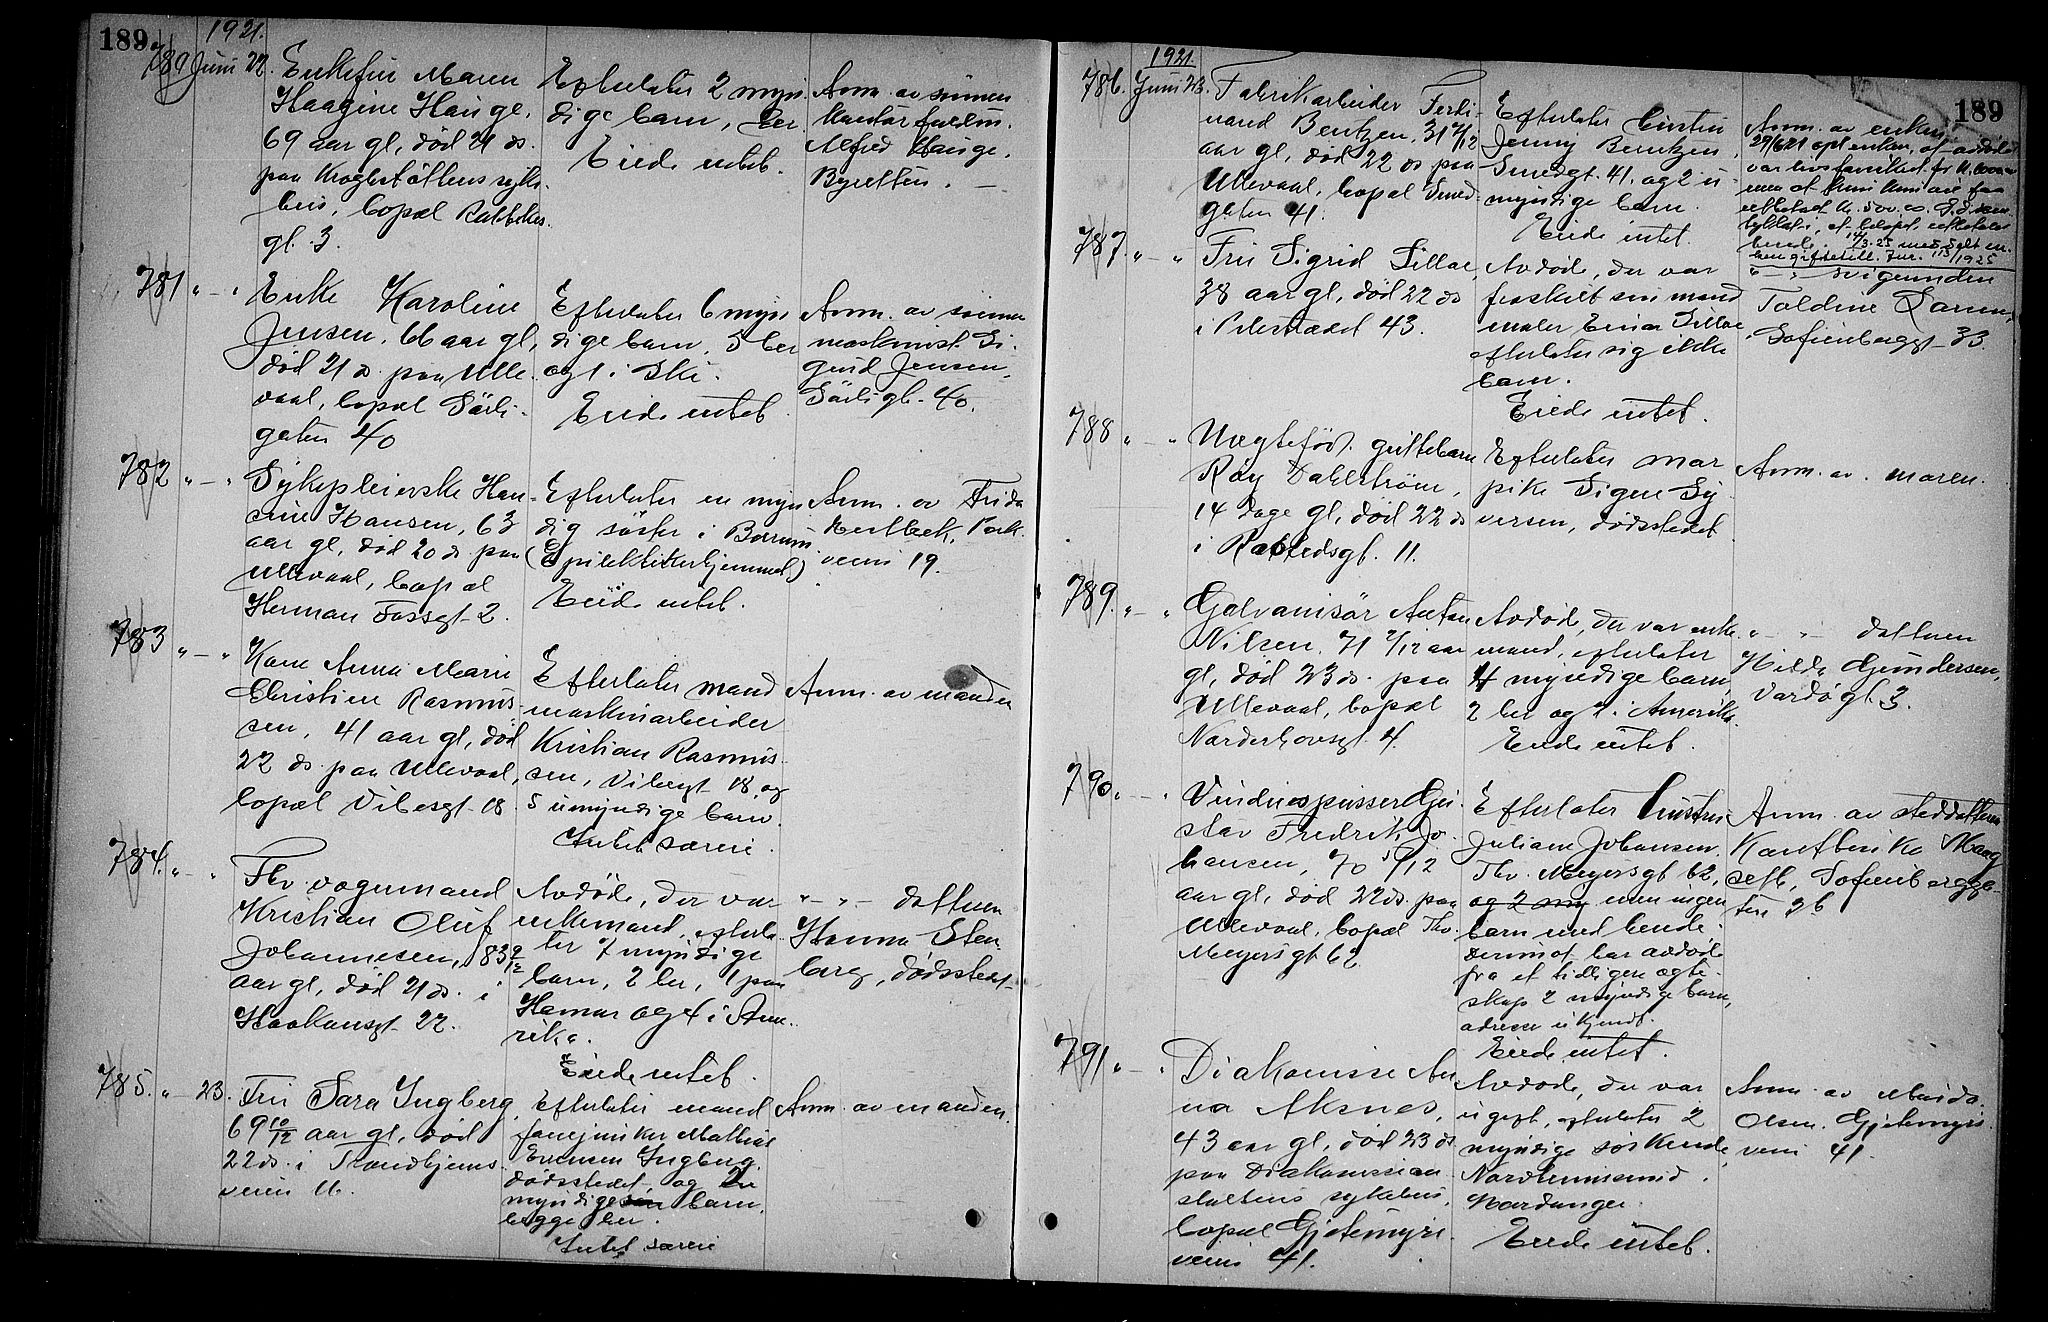 189
1921.
780 Juni 22.
Enkefru Maren
Haagine Hauge,
69 aar gl, död 21 ds.
paa Krogstöttens syke-
hus, bopæl Rubbekes
gt. 3.
Efterlater 2 myn
dige barn, her
Eiede intet.
Anm. av sönnen
kontorfuldm.
Alfred Hauge,
Byretten. —
781 " — "
Enke Karoline
Jensen, 66 aar gl,
död 21 ds. paa Ulle
vaal, bopæl Sörli-
gaten 40
Efterlater 6 myn
dige barn, 5 her
og 1 i Ski.
Eiede intet.
Anm. av sönnen
maskinist Si-
gurd Jensen,
Sörligt. 40.
782 " — "
Sykepleierske Han-
sine Hansen, 63
aar gl, död 20 ds paa
Ullevaal, bopæl
Herman Fossgt 2.
Efterlater en myn
dig söster i Bærum
(Epileptikerhjemmet)
Eiede intet.
Anm. av Frida
Park
veien 19.
783 " — "
Kone Anna Marie
Christine Rasmus-
sen, 41 aar gl, död
22 ds. paa Ullevaal,
bopæl Vibesgt 18
Efterlater mand
maskinarbeider
Kristian Rasmus-
sen, Vibesgt 18, og
5 umyndige barn.
Intet særeie.
Anm. av manden
784. " — "
Fhv. vognmand
Kristian Oluf
Johannesen, 83 9/12
aar gl, död 21 ds. i
Haakonsgt 22.
Avdöde, der var
enkemand, efterla-
ter 7 myndige
barn, 2 her, 1 paa
Hamar og 4 i Ame-
rika.
Eiede intet.
" — " — datteren
Hanna Sten
berg, dödsstedet
785. " — 23.
Fru Sara Ingberg
69 10/12 aar gl, död
22 ds. i Trondhjems
veien 16.
Efterlater mand
fanejunker Mathias
Evensen Ingberg,
dödsstedet og 2
myndige barn,
begge her.
Intet særeie
Anm. av manden.
189
1921
786. Juni 23.
Fabrikarbeider Ferdi-
nand Bentzen, 31 2/12
aar gl, död 22 ds paa
Ullevaal, bopæl Smed-
gaten 41.
Efterlater hustru
Jenny Bentzen,
Smedgt. 41. og 2 u-
myndige barn.
Eiede intet.
Anm. av enken
29/6 21 opl enken, at avdöde
var livsforsikret for kr. 1000.00
men at hun kun vil faa
utbetalt kr. 500.00.
787. " — "
Fru Sigrid Lilloe,
38 aar gl, död 22 ds
i Pilestrædet 43.
Avdöde, der var
fraskilt sin mand
maler Einar Lilloe
efterlater sig ikke
barn.
Eiede intet.
" — " svigerinden
Toldine Larsen,
Sofienberggt 33.
788 " — "
Uegtefödt guttebarn
Roy Dahlström,
14 dage gl, död 22 ds
i Rostedsgt. 11.
Efterlater mor
pike Signe Sy-
versen, dödsstedet
Anm. av moren.
789. " — "
Galvanisör Anton
Nilsen, 71 7/12 aar
gl, död 23 ds. paa
Ullevaal, bopæl
Norderhovsgt. 4.
Avdöde, der var enke
mand, efterlater
4 myndige barn,
2 her og 2 i Amerika.
Eiede intet.
" — " — datteren
Hilda Gundersen,
Vardögt. 3.
790. " — "
Vinduespusser Gu-
stav Fredrik Jo-
hansen, 70 5/12
aar gl, död 22 ds. paa
Ullevaal, bopæl Thv.
Meyersgt 62.
Efterlater hustru
Juliane Johansen,
Thv. Meyersgt 62,
og 2 my men ingen
barn med hende.
Derimot har avdöde
fra et tidligere egte-
skap 2 myndige barn,
adresse ukjendt.
Eiede intet.
Anm. av steddatteren
Haug
seth, Sofienbergga-
ten 36
791 " — "
Diakonisse An
na Aksnes,
43 aar gl, död 23 ds
paa Diakonissean
staltens sykehus,
bopæl Gjetemyrs-
veien 41.
Avdöde, der var
ugift, efterlater 2
myndige söskende,
Nordheimsund,
Hardanger
Eiede intet.
Anm. av
Olsen, Gjetemyrs
veien 41.